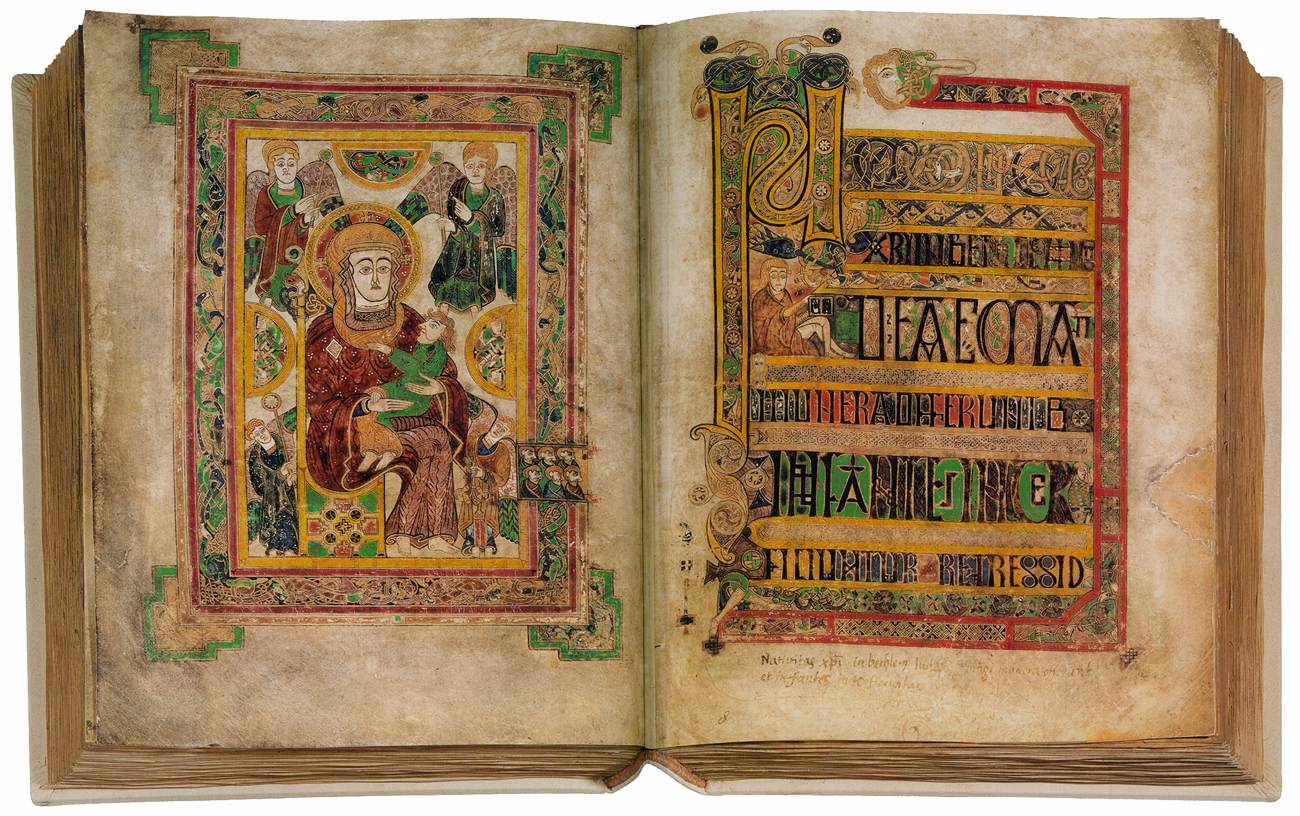 NATIUITAS
XPI IN BETHLEM IU
DEAE MAGI
MUNERA OFFERUNT E
INFANTES INTER
FICIUNTUR REGRESSIO
Nativitas xpi in bethlem Iudae magi munera offerunt
et infantes interficiuntur
8